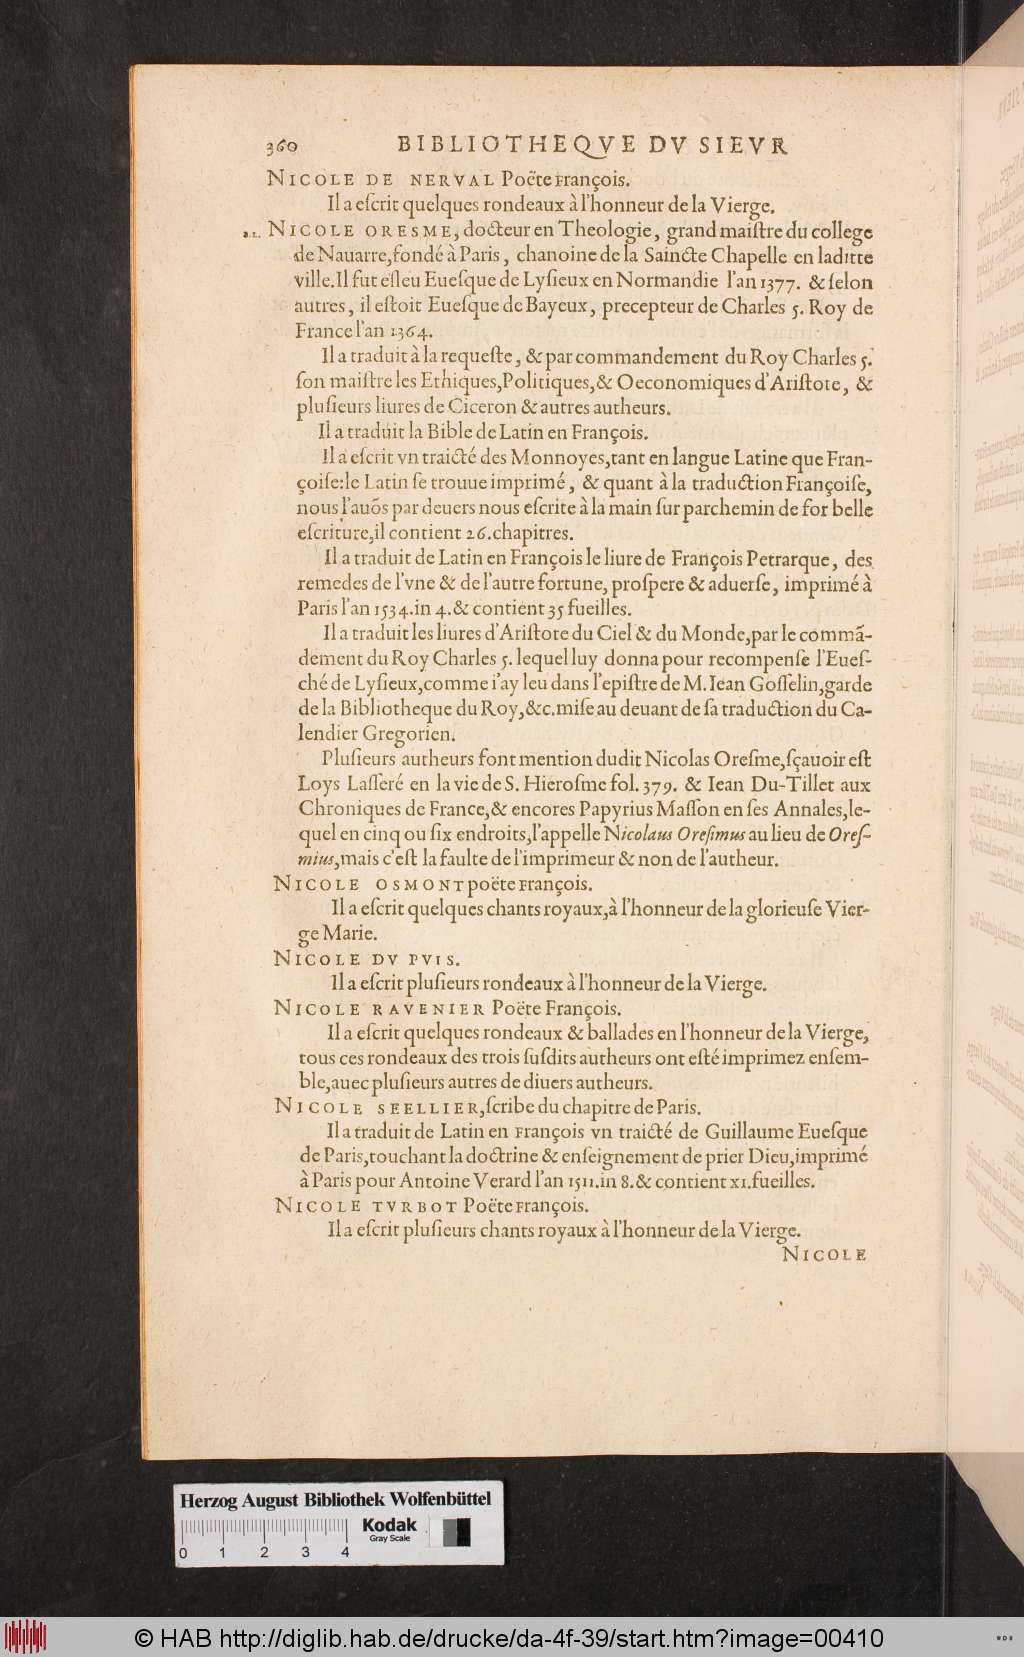 360 BIBLIOTHEQVE DV SIEVR
NICOLE DE NERVAL Poëte François.
Il a eſcrit quelques rondeaux à l'honneur de la Vierge.
NICOLE ORESME, docteur en Theologie, grand maiſtre du college
de Nauarre, fondé à Paris, chanoine de la Saincte Chapelle en laditte
ville. Il fut eſleu Eueſque de Lyſieux en Normandie l'an 1377. & ſelon
autres, il eſtoit Eueſque de Bayeux, precepteur de Charles 5. Roy de
France l'an 1364.
Il a traduit à la requeſte, & par commandement du Roy Charles 5.
ſon maiſtre les Ethiques, Politiques, & Oeconomiques d'Ariſtote, &
pluſieurs liures de Ciceron & autres autheurs.
Il a traduit la Bible de Latin en François.
Il a eſcrit vn traicté des Monnoyes, tant en langue Latine que Fran-
çoiſe: le Latin ſe trouue imprimé, & quant à la traduction Françoiſe,
nous l'auõs par deuers nous eſcrite à la main ſur parchemin de for belle
eſcriture, il contient 26. chapitres.
Il a traduit de Latin en François le liure de François Petrarque, des
remedes de l'vne & de l'autre fortune, proſpere & aduerſe, imprimé à
Paris l'an 1534. in 4. & contient 35 fueilles.
Il a traduit les liures d'Ariſtote du Ciel & du Monde, par le commã-
dement du Roy Charles 5. lequel luy donna pour recompenſe l'Eueſ-
ché de Lyſieux, comme i'ay leu dans l'epiſtre de M. Iean Goſſelin, garde
de la Bibliotheque du Roy, &c. miſe au deuant de ſa traduction du Ca-
lendier Gregorien.
Pluſieurs autheurs font mention dudit Nicolas Oreſme, ſçauoir eſt
Loys Laſſeré en la vie de S. Hieroſme fol. 379. & Iean Du-Tillet aux
Chroniques de France, & encores Papyrius Maſſon en ſes Annales, le-
quel en cinq ou ſix endroits, l'appelle Nicolaus Oreſimus au lieu de Oreſ-
mius, mais c'eſt la faulte de l'imprimeur & non de l'autheur.
NICOLE OSMONT poëte François.
Il a eſcrit quelques chants royaux, à l'honneur de la glorieuſe Vier-
ge Marie.
NICOLE DV PVIS.
Il a eſcrit pluſieurs rondeaux à l'honneur de la Vierge.
NICOLE RAVENIER Poëte François.
Il a eſcrit quelques rondeaux & ballades en l'honneur de la Vierge,
tous ces rondeaux des trois ſuſdits autheurs ont eſté imprimez enſem-
ble, auec pluſieurs autres de diuers autheurs.
NICOLE SEELLIER, ſcribe du chapitre de Paris.
Il a traduit de Latin en François vn traicté de Guillaume Eueſque
de Paris, touchant la doctrine & enſeignement de prier Dieu, imprimé
à Paris pour Antoine Verard l'an 1511. in 8. & contient XI. fueilles.
NICOLE TVRBOT Poëte François.
Il a eſcrit pluſieurs chants royaux à l'honneur de la Vierge.
NICOLE
Herzog August Bibliothek Wolfenbüttel
Kodak
Gray Scale
0 1 2 3 4
© HAB http://diglib.hab.de/drucke/da-4f-39/start.htm?image=00410